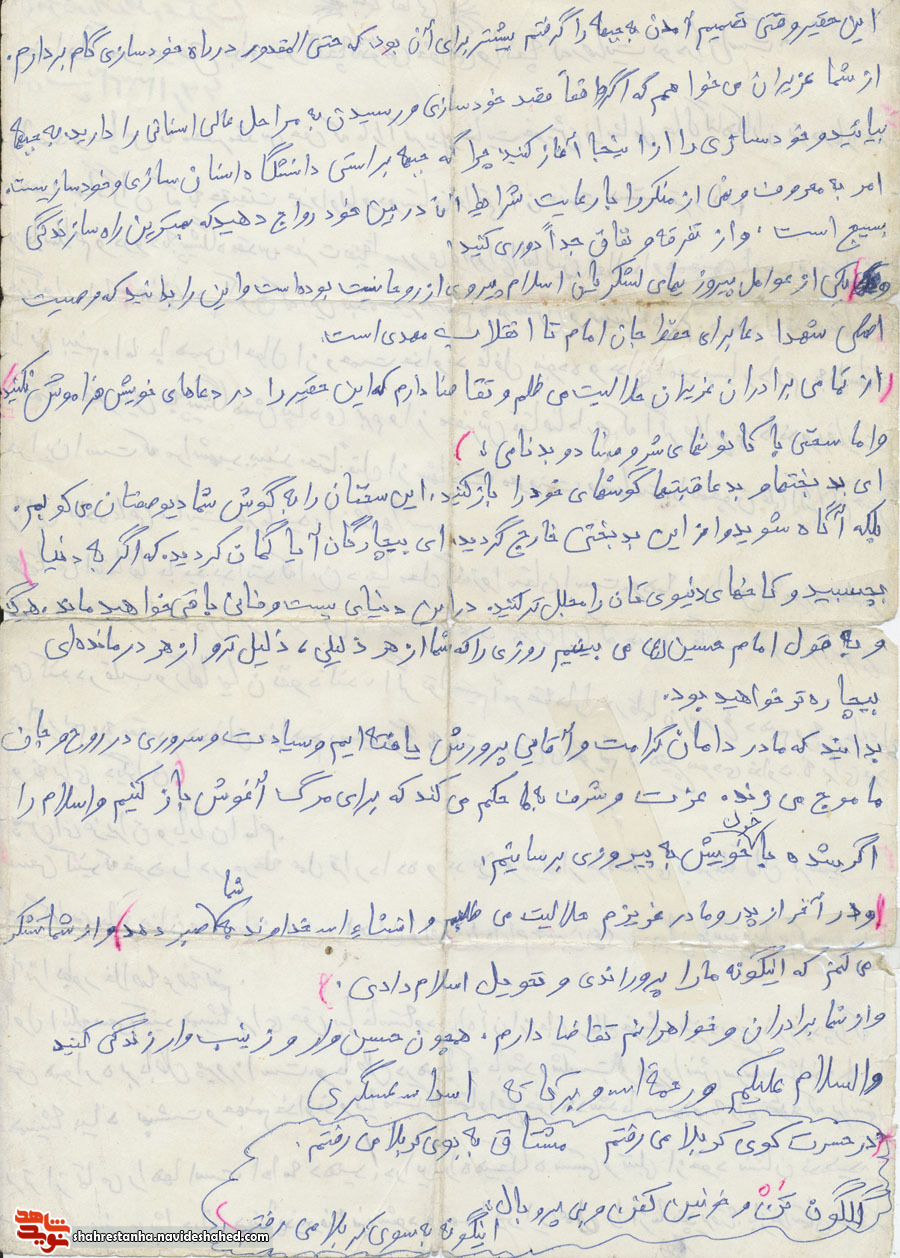 این حقیر وقتی تصمیم آمدن به جبهه را گرفتم بیشتر برای آن بود که حتی المقدور در راه خودسازی گام بردارم.
از شما عزیزان می خواهم که اگر واقعاً قصد خودسازی و رسیدن به مراحل عالی انسانی را دارید به جبهه
بیائید و خودسازی را از اینجا آغاز کنید چرا که جبهه براستی دانشگاه انسان سازی و خودسازیست.
امر به معروف و نهی از منکر را با رعایت شرایط آن در بین خود رواج دهید که بهترین راه سازندگی
بسیج است. و از تفرقه و نفاق جداً دوری کنید.
یکی از عوامل پیروزیهای لشکریان اسلام پیروی از روحانیت بوده است و این را بدانید که وصیت
اصلی شهدا دعا برای حفظ جان امام تا انقلاب مهدی است.
(از تمامی برادران عزیزان حلالیت می طلم و تقاضا دارم که این حقیر را در دعاهای خویش فراموش نکنید
و اما سخنی با کانونهای شر و فساد و بدنامی؛)
ای بدبختها و بدعاقبتها گوشهای خود را باز کنید، این سخنان را به گوش شما دیوصفتان می کوبم.
بلکه آگاه شوید و از این بدبختی خارج گردید. ای بیچارگان آیا گمان کردید که اگر به دنیا
بچسبید و کاخهای دنیوی تان را مجلل تر کنید. در این دنیای پست و فانی باقی خواهید ماند. هرگز
و به قول امام حسین (ع) می بینیم روزی را که شما از هر ذلیلی، ذلیل تر و از هر درمانده ای
بیچاره تر خواهید بود.
بدانید که ما در دامان کرامت و آقایی پرورش یافته ایم و سیادت و سروری در روح و جان
ما موج می زند. عزت و شرف به ما حکم می کند که برای مرگ آغوش باز کنیم و اسلام را
اگر شده با خون خویش به پیروزی برسانیم.
و در آخر از پدر و مادر عزیزم حلالیت می طلبم و انشاءاله خداوند به شما صبر دهد) و از شما تشکر
می کنم که اینگونه ما را پروراندی و تحویل اسلام دادی.)
و از شما برادران و خواهرانم تقاضا دارم، همچون حسین وار و زینب وار زندگی کنید
والسلام علیکم و رحمة اله و برکاته اسداله عسگری
در حسرت کوی کربلا می رفتم مشتاق به بوی کربلا می رفتم.
گلگون تن و خونین کفن و بی پر و بال.
اینگونه به سوی کربلا می رفتم
نوید شاهد
shahrestanha.navideshahed.com